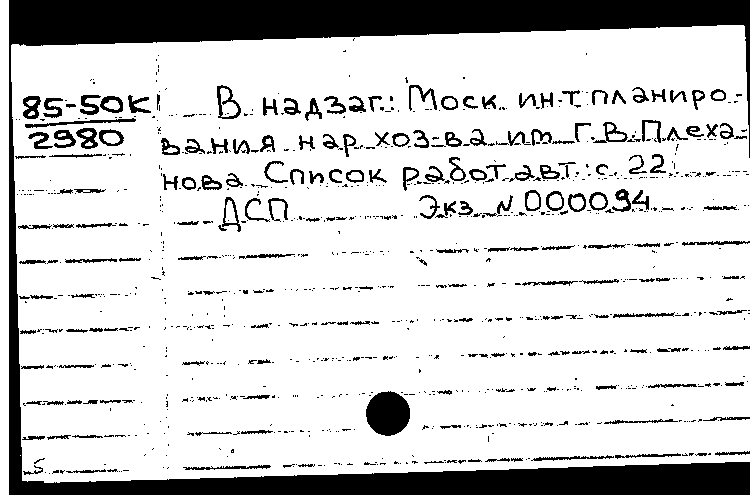 85-50К
2980
В надзаг.: Моск. ин-т планиро-
вания нар. хоз-ва им. Г.В. Плеха-
нова. Список работ авт.: с. 22.
ДСП. Экз. N 000094.
5